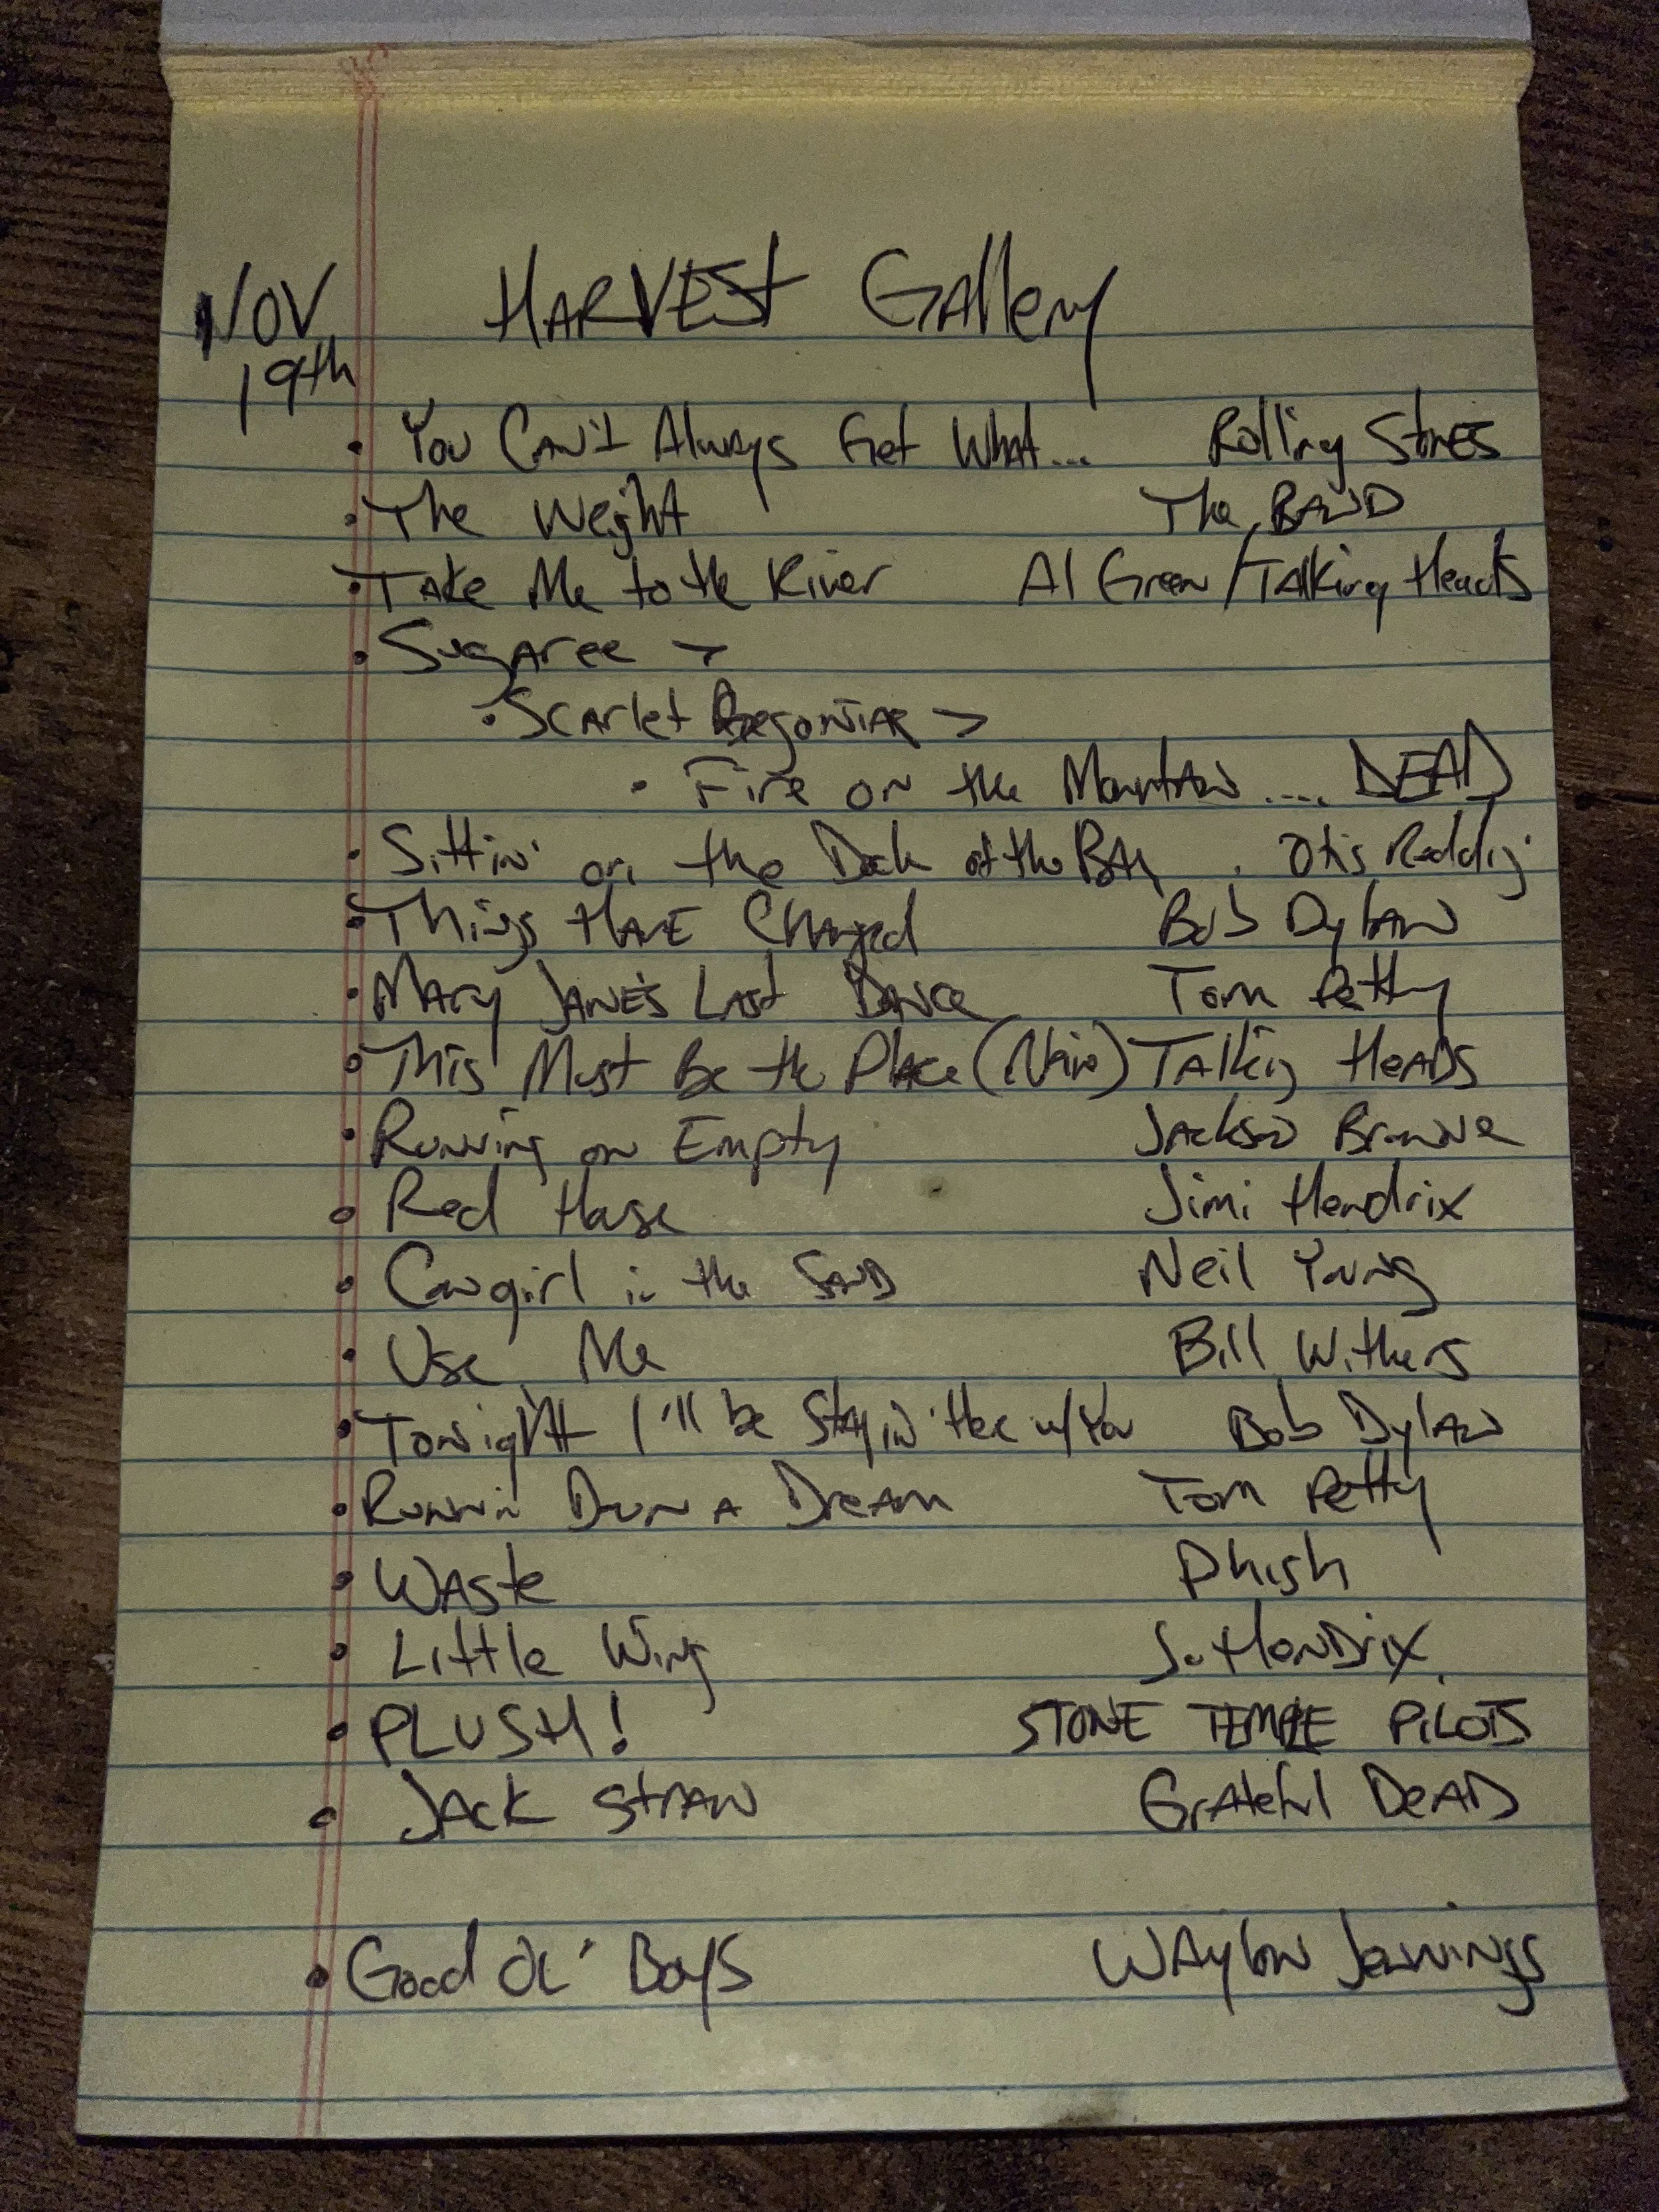 Nov 19th Harvest Gallery
• You Can't Always Get What... Rolling Stones
• The Weight The Band
• Take Me to the River Al Green / Talking Heads
• Sugaree >
• Scarlet Begonias >
• Fire on the Mountain .... DEAD
• Sittin' on the Dock of the Bay . Otis Redding
• Things Have Changed Bob Dylan
• Mary Jane's Last Dance Tom Petty
• This Must Be the Place (Naive) Talking Heads
• Running on Empty Jackson Browne
• Red House Jimi Hendrix
• Cowgirl in the Sand Neil Young
• Use Me Bill Withers
• Tonight I'll be Stayin' Here w/You Bob Dylan
• Runnin Down A Dream Tom Petty
• Waste Phish
• Little Wing J. Hendrix
• PLUSH! STONE TEMPLE PILOTS
• Jack Straw Grateful Dead
• Good Ol' Boys Waylon Jennings